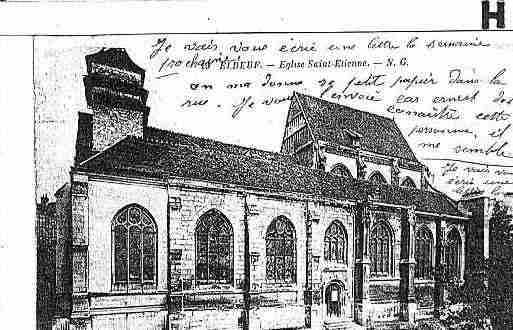 H
Je vais vous écrié une lettre la semaine
prochaine
ELBEUF. — Eglise Saint-Etienne. — N. G.
on ma donné ce petit papier dans la
rue. Je vous l'envoie car ernest doi
connaitre cette
personne, il
me semble
Je vais vou
écrié une